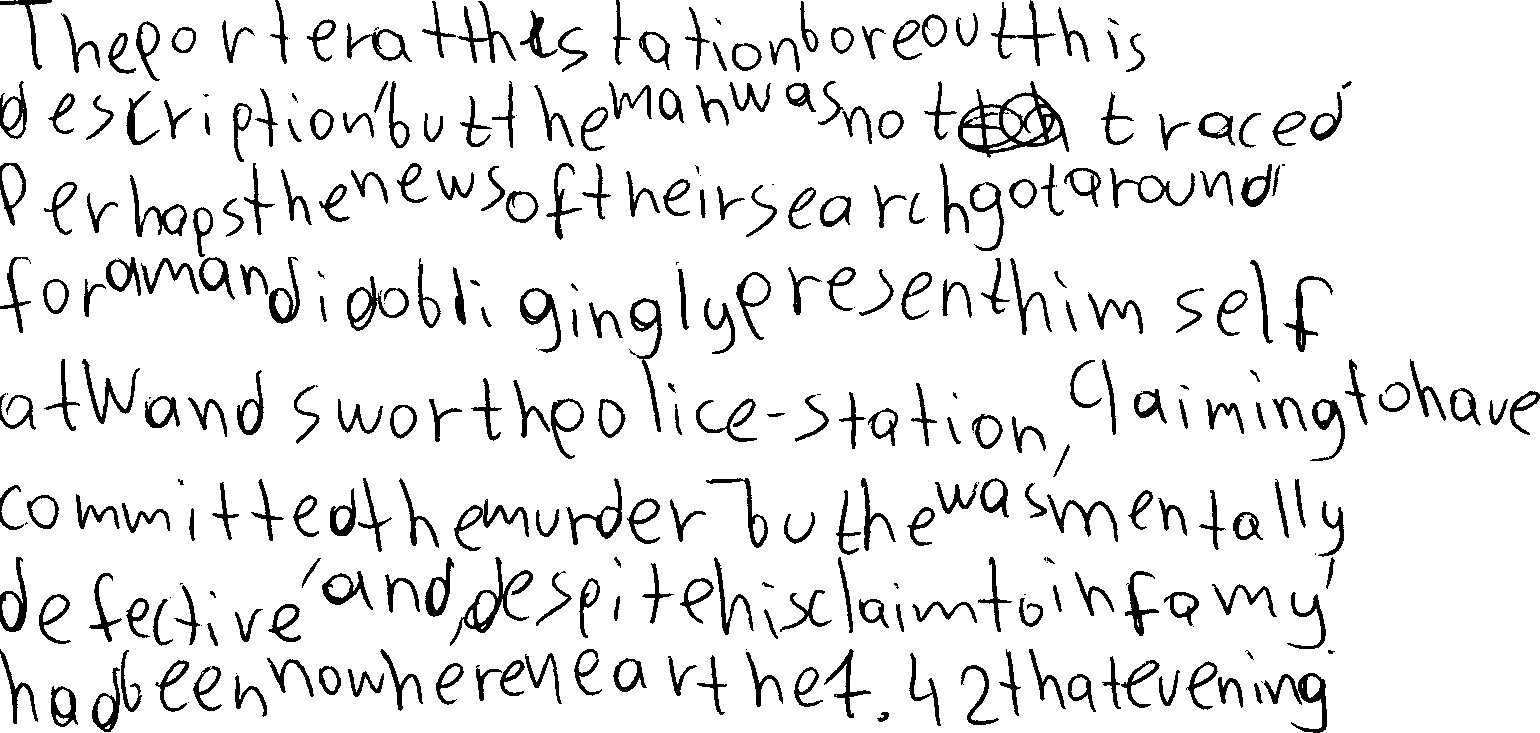 The porter at the station bore out this
description 'but the man was not traced
Perhaps the news of their search got around
for a man did obligingly present himself
at Wandsworth police-station, claiming to have
committed the murder but he was mentally
defective 'and, despite his claim to infamy'
had been nowhere near the 7.42 that evening